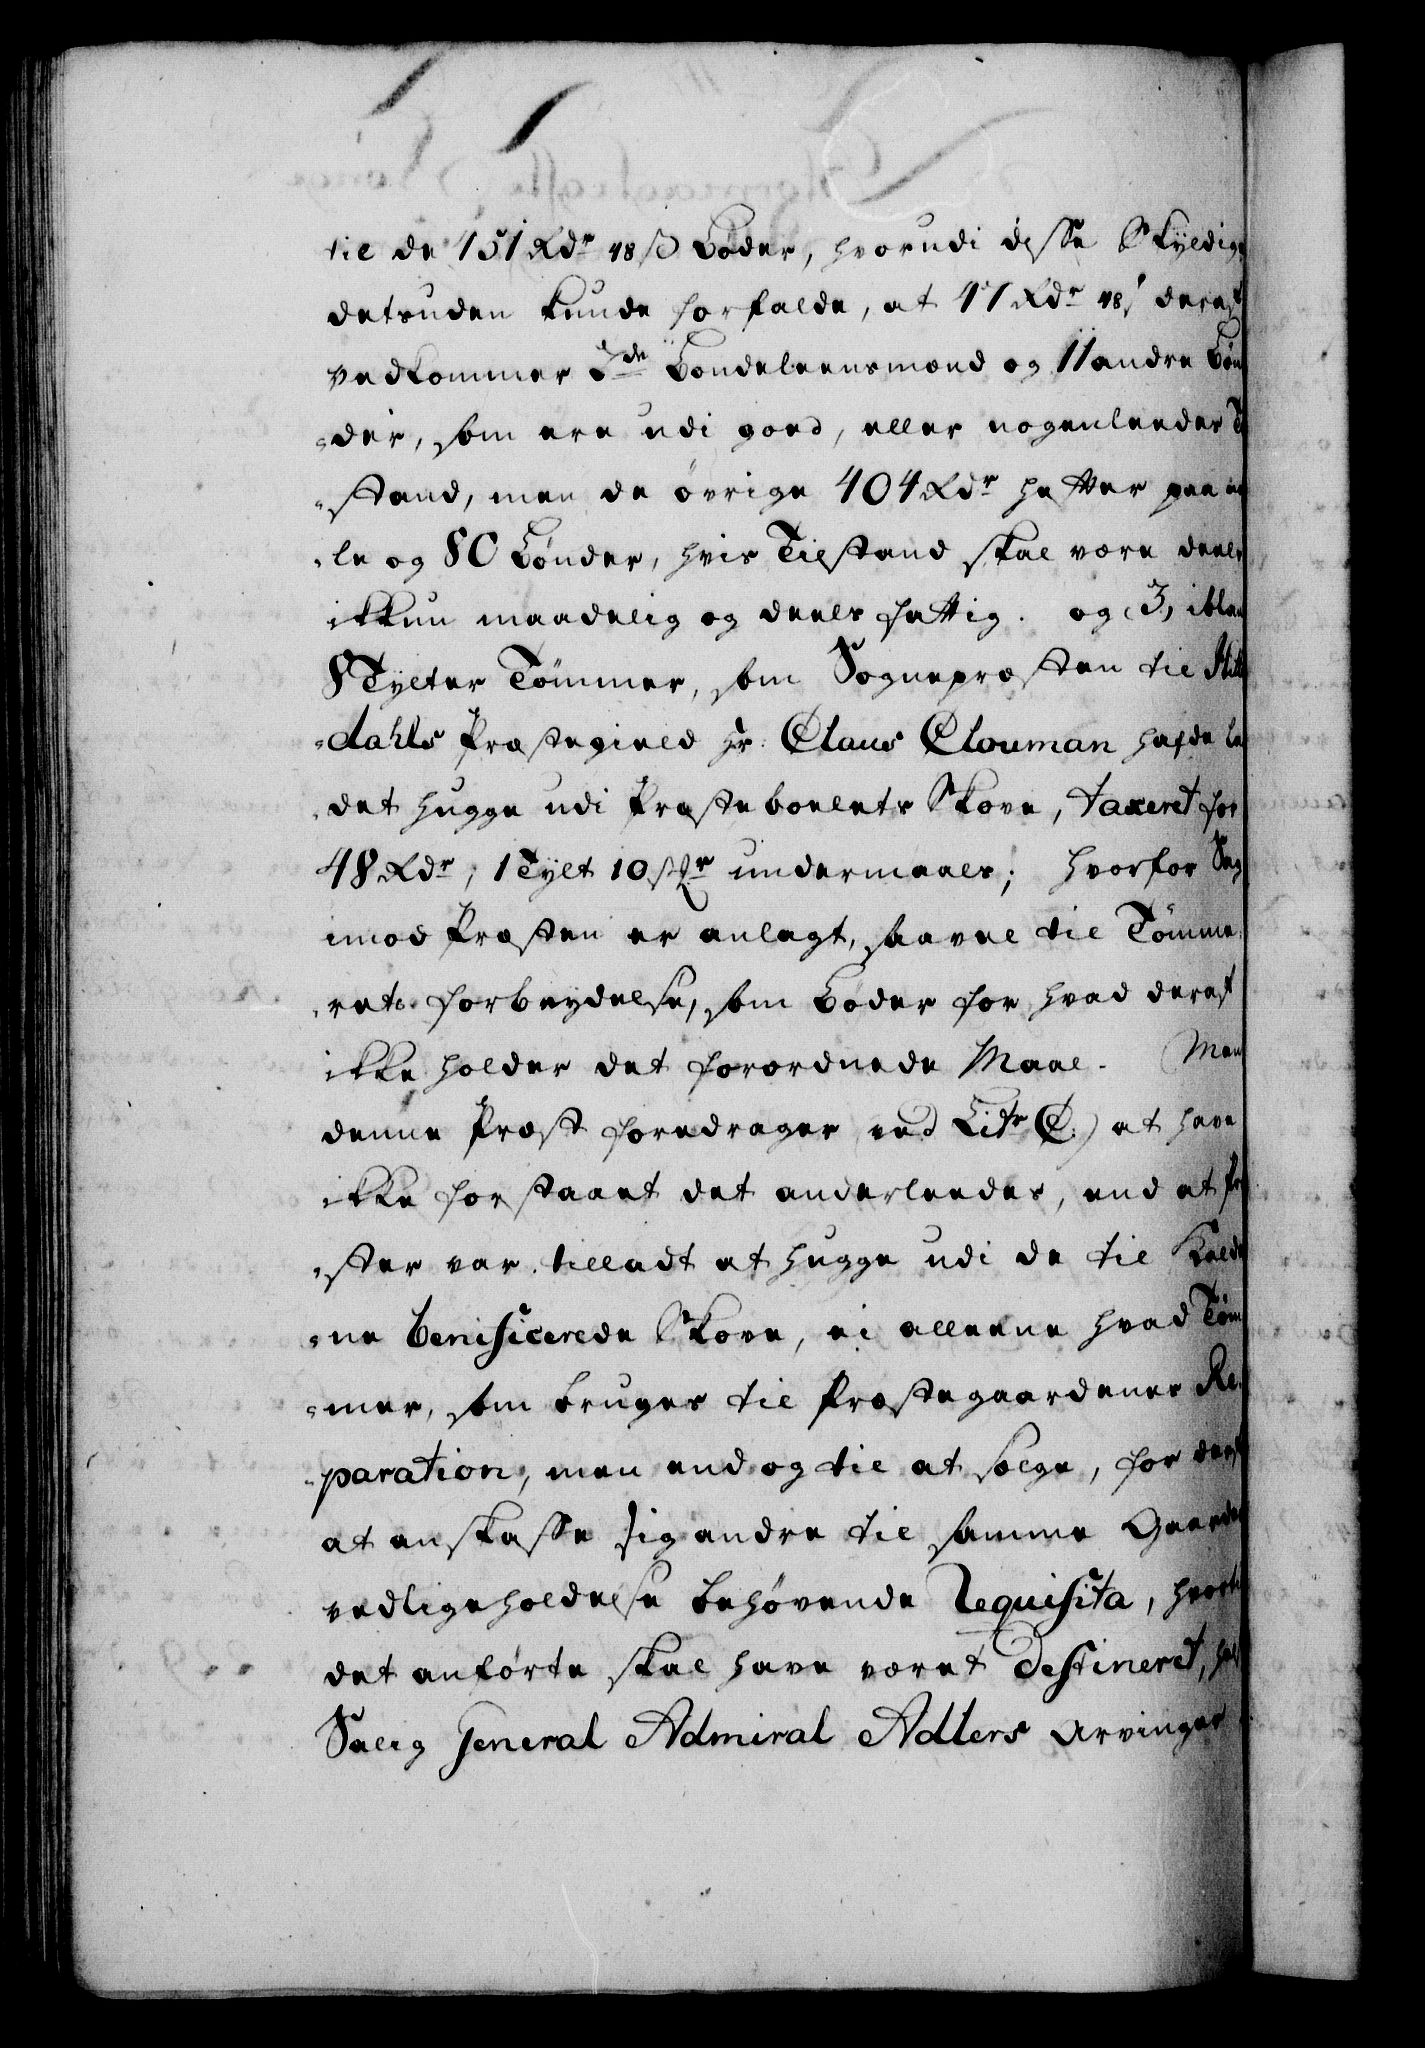 til de 451 Rdr 48 ß Bøder, hvorudi disse Skyldige
desuden kunde forfalde, at 47 Rdr 48 ß deraf
vedkommer 3de Bondeleensmænd og 11 andre Bøn
-der, som ere udi goed, eller nogenleedes
-stand, men de øvrige 404 Rdr hefter paa en
-le og 80 Bønder, hvis Tilstand skal være deels
ikkun maadelig og deels fattig. og 3, iblan
8 Tylter Tømmer, som Sognepræsten til Hitt
-dahls Præstegield Hr: Claus Clouman hafde la
-det hugge udi Præsteboelets Skove, taxeret for
48 Rdr, 1 Tylt 10 stkr undermaals; hvorfor Sag
imod Præsten er anlagt, saavel til Tømme
-rets forbrydelse, som Bøder for hvad deraf
ikke holder det forordnede Maal. Men
denne Præst foredrager (ved Litr C.) at have
ikke forstaaet det anderleedes, end at Præ
-ster var tilladt at hugge udi de til Kalde
-ne beneficerede Skove, ei alleene hvad Tøm
-mer, som bruges til Præstegaardenes Re
-paration, men endog til at sælge, for derf
at anskaffe sig andre til samme Gaarde
vedligeholdelse behøvende Requisita, hvortil
det anførte skal have været destineret,
Salig General Admiral Adlers Arvinger